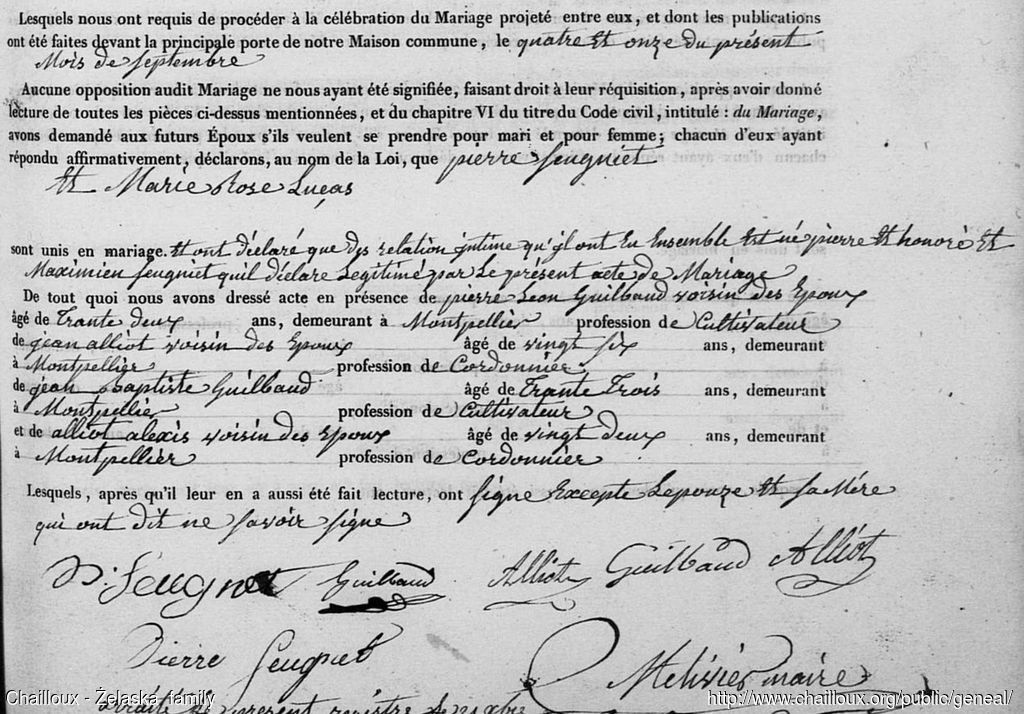 Lesquels nous ont requis de procéder à la célébration du Mariage projeté entre eux, et dont les publications
ont été faites devant la principale porte de notre Maison commune, le quatre Et onze du présent
Mois de septembre
Aucune opposition audit Mariage ne nous ayant été signifiée, faisant droit à leur réquisition, après avoir donné
lecture de toutes les pièces ci-dessus mentionnées, et du chapitre VI du titre du Code civil, intitulé : du Mariage,
avons demandé aux futurs Époux s'ils veulent se prendre pour mari et pour femme; chacun d'eux ayant
répondu affirmativement, déclarons, au nom de la Loi, que pierre feugniet
Et Marie Rose Luças
sont unis en mariage. Et ont déclaré que dys relation jntime qu'jl ont Eu Ensemble Est né pierre Et honoré Et
Maximien feugniet quil diclare Legitimé par Le présent acte de Mariage
De tout quoi nous avons dressé acte en présence de pierre Leon Guilbaud voisin des Epoux
âgé de Trante deux ans, demeurant à Montpellier profession de Cultivateur
de jean alliot voisin des Epoux âgé de vingt six ans, demeurant
à Montpellier profession de Cordonnier
de jean Baptiste Guilbaud âgé de Trante Trois ans, demeurant
à Montpellier profession de Cultivateur
et de alliot alexis voisin des Epoux âgé de vingt deux ans, demeurant
à Montpellier profession de Cordonnier
Lesquels, après qu'il leur en a aussi été fait lecture, ont signe Excepte Lepouze Et sa Mére
qui ont dit ne savoir signe
Feugniet Guilbaud Alliot Guilbaud Alliot
Pierre Feugniet
maire
présent
Chailloux - Želaská family
http://www.chailloux.org/public/geneal/